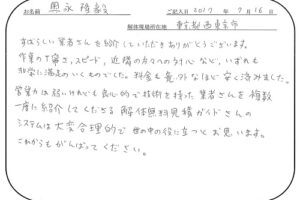 お名前 奥永隆毅 ご記入日 2017 年 7 月 16 日
解体現場所在地 東京都西東京市
すばらしい業者さんを紹介していただきありがとうございます。
作業の丁寧さ、スピード、近隣の方々へのケイハイなど、いずれも
非常に満足のいくものでした。料金も意外なほど安く済みました。
営業力は弱いけれども良心的で技術を持った業者さんを複数
一度に紹介してくださる解体無料見積ガイドさんの
システムは大変合理的で世の中の役に立つとお思います。
これからもがんばってください。